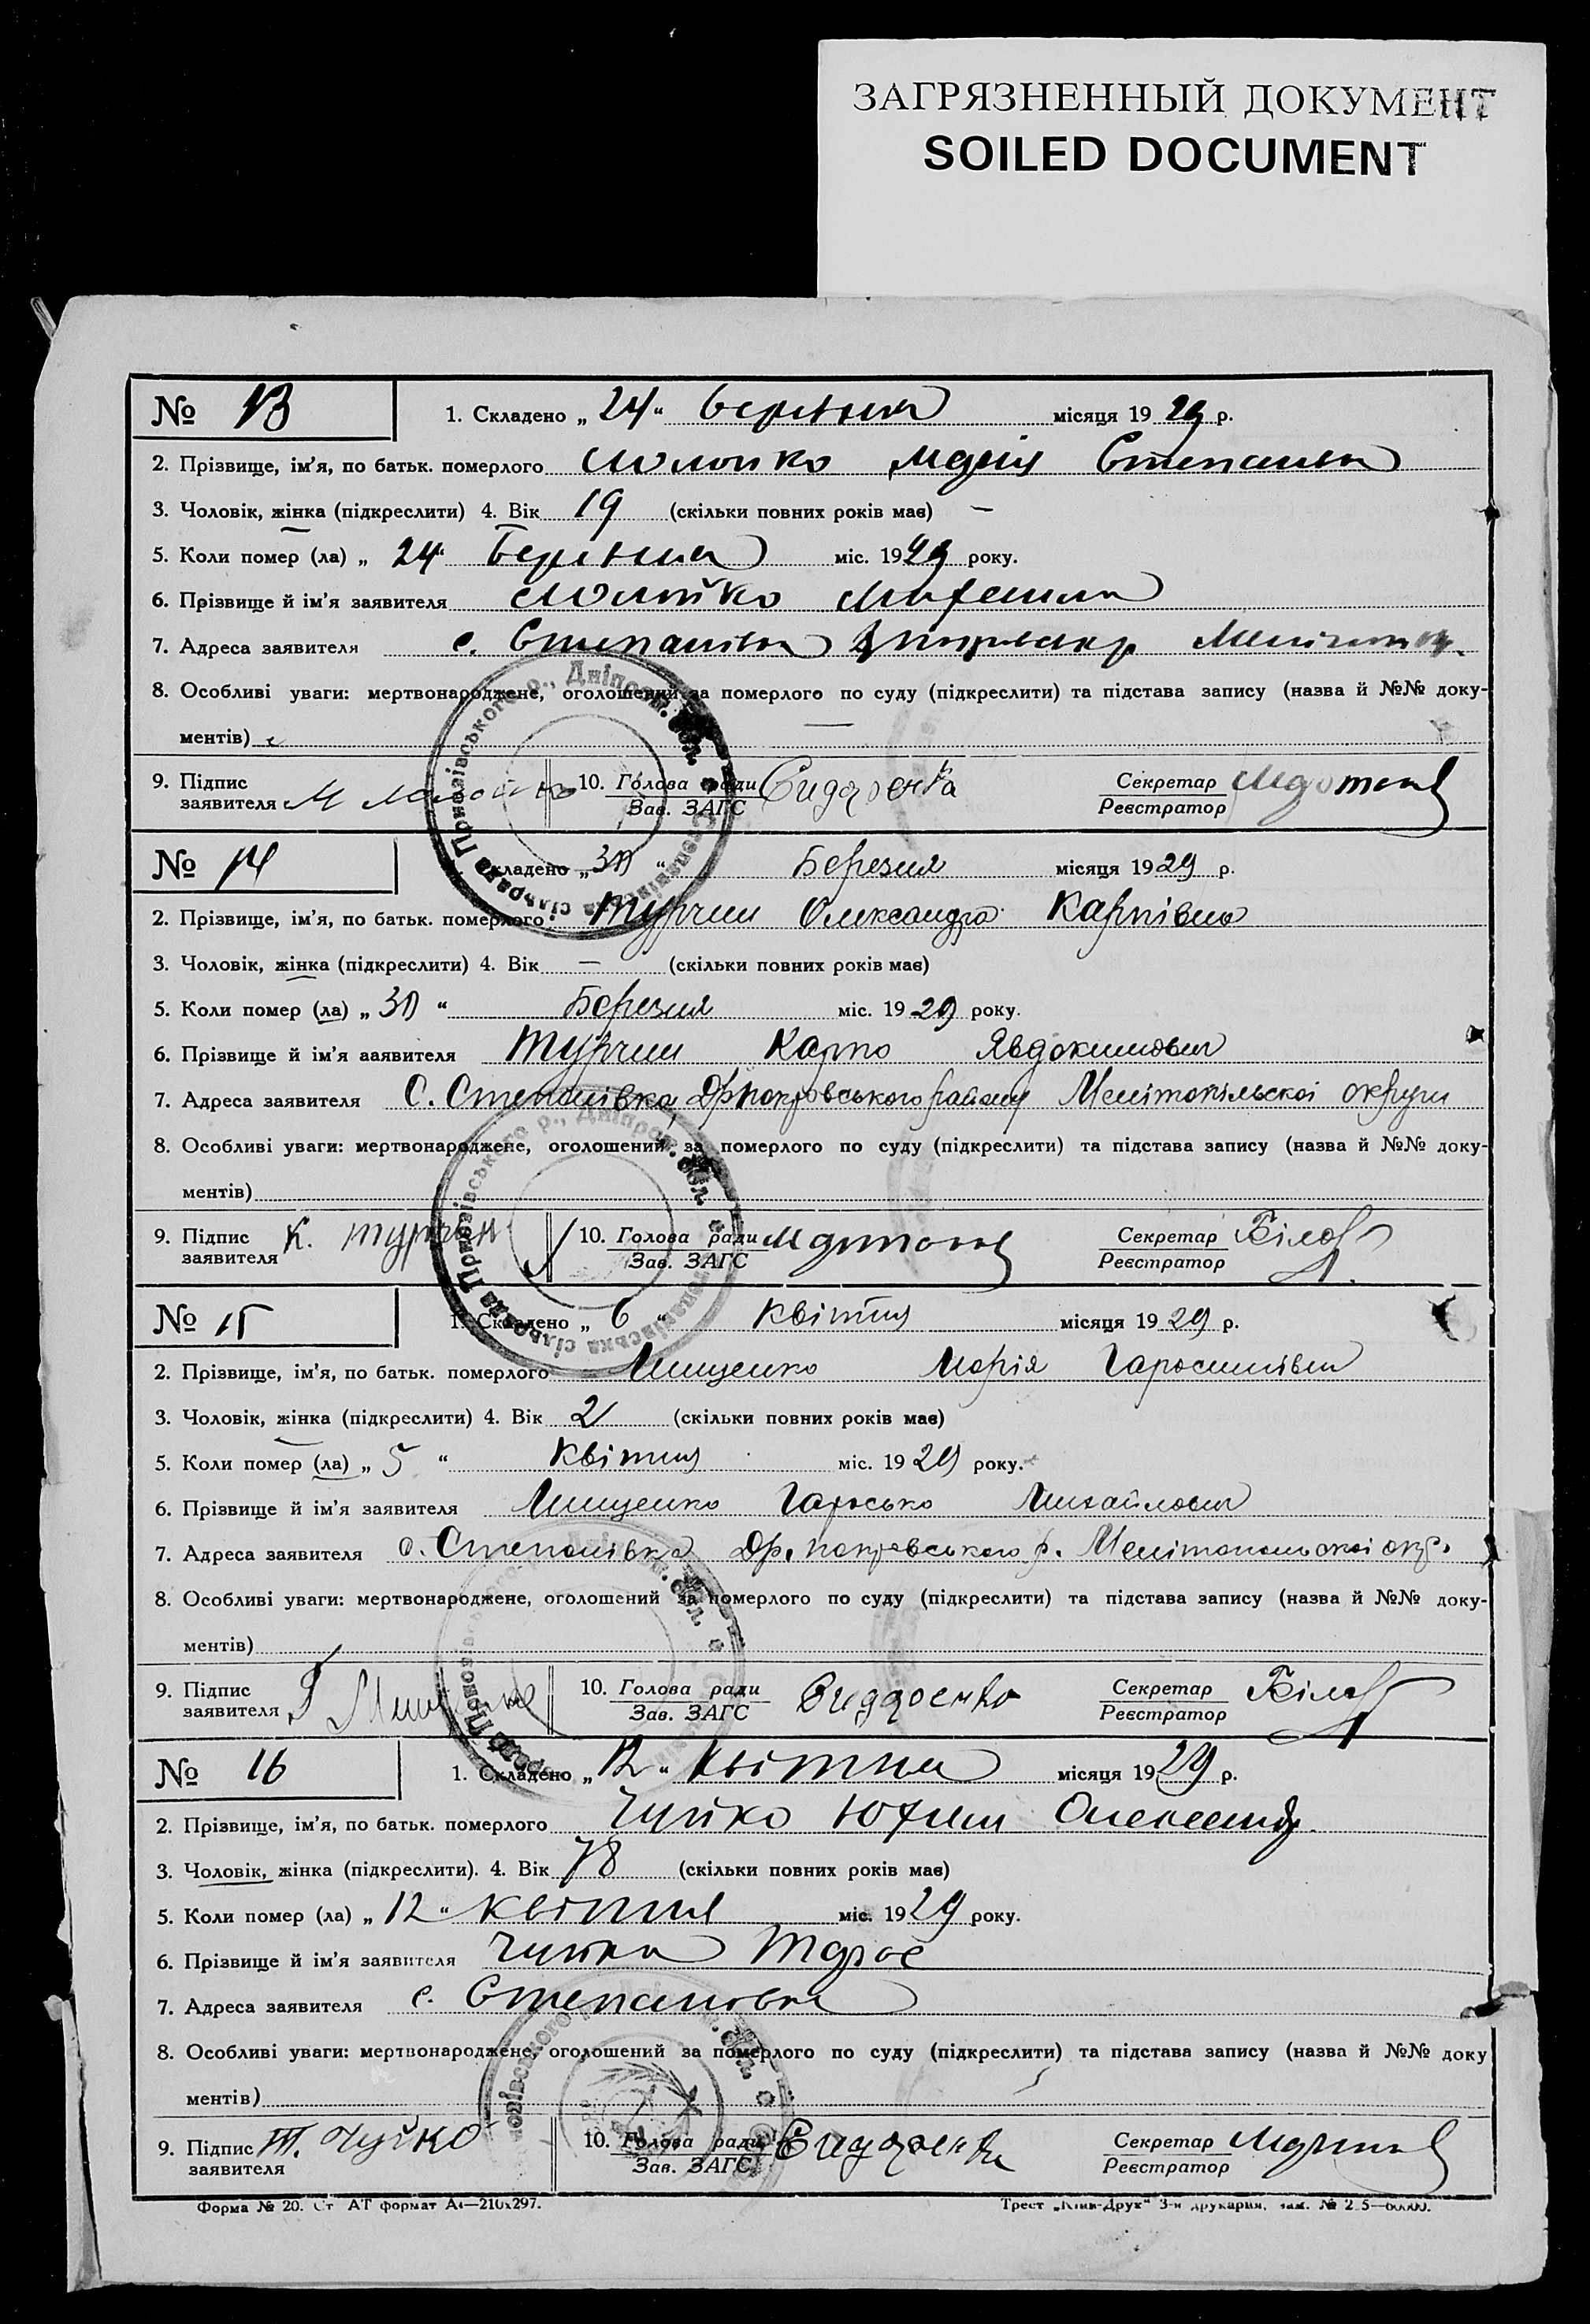 ЗАГРЯЗНЕННЫЙ ДОКУМЕНТ
SOILED DOCUMENT
№ 13 1. Складено „ 24 “ березня місяця 19 29 р.
2. Прізвище, ім’я, по батьк. померлого Марія Степанівна
3. Чоловік, жінка (підкреслити) 4. Вік 19 (скільки повних років має) —
5. Коли помер (ла) „ 24 “ березня міс. 19 29 року.
6. Прізвище й ім’я заявителя
7. Адреса заявителя с. Степанівка
8. Особливі уваги: мертвонароджене, оголошений за померлого по суду (підкреслити) та підстава запису (назва й №№ доку-
ментів)
9. Підпис заявителя 10. Голова ради Зав. ЗАГС Сидоренко Секретар Реєстратор
№ 14 Складено „ 30 “ Березня місяця 19 29 р.
2. Прізвище, ім’я, по батьк. померлого Турчин Олександра Карпівна
3. Чоловік, жінка (підкреслити) 4. Вік — (скільки повних років має)
5. Коли помер (ла) „ 30 “ Березня міс. 19 29 року.
6. Прізвище й ім’я заявителя Турчин Карпо Явдокимович
7. Адреса заявителя С. Степанівка, Др покровського району Мелітопільскої округи
8. Особливі уваги: мертвонароджене, оголошений за померлого по суду (підкреслити) та підстава запису (назва й №№ доку-
ментів)
9. Підпис заявителя К. Турчин 10. Голова ради Зав. ЗАГС Секретар Реєстратор
№ 15 1. Складено „ 6 “ Квітня місяця 19 29 р.
2. Прізвище, ім’я, по батьк. померлого Мищенко Марія Гаросимівна
3. Чоловік, жінка (підкреслити) 4. Вік 2 (скільки повних років має)
5. Коли помер (ла) „ 5 “ Квітня міс. 19 29 року.
6. Прізвище й ім’я заявителя Мищенко Гарасько Михайлович
7. Адреса заявителя с. Степанівка Др. покровського р. Мелітопольскої окр.
8. Особливі уваги: мертвонароджене, оголошений за померлого по суду (підкреслити) та підстава запису (назва й №№ доку-
ментів)
9. Підпис заявителя Г Мищенко 10. Голова ради Зав. ЗАГС Сидоренко Секретар Реєстратор
№ 16 1. Складено „ 12 “ Квітня місяця 19 29 р.
2. Прізвище, ім’я, по батьк. померлого Чуйко Юхим
3. Чоловік, жінка (підкреслити). 4. Вік 78 (скільки повних років має)
5. Коли помер (ла) „ 12 “ Квітня міс. 19 29 року.
6. Прізвище й ім’я заявителя Чуйко Тарас
7. Адреса заявителя с. Степанівка
8. Особливі уваги: мертвонароджене, оголошений за померлого по суду (підкреслити) та підстава запису (назва й №№ доку
ментів)
9. Підпис заявителя Т. Чуйко 10. Голова ради Зав. ЗАГС Сидоренко Секретар Реєстратор
Форма № 20. Ст АТ формат А4—210x297. Трест „Київ-Друк“ 3-я друкарня,